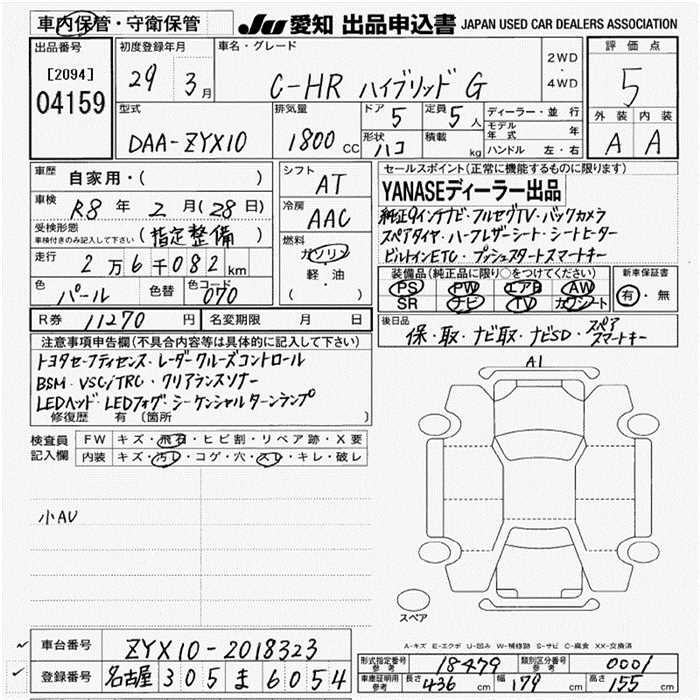 車内保管・守衛保管
JU 愛知 出品申込書 JAPAN USED CAR DEALERS ASSOCIATION
出品番号
[2094]
04159
初度登録年月
29 3月
車名・グレード
C-HR ハイブリッド G
2WD
・
4WD
評価点
5
外装 内装
A A
型式
DAA-ZYX10
排気量
1800 CC
ドア 5
定員 5 人
形状 ハコ
積載 kg
ディーラー・並行
モデル年式 年
ハンドル 左・右
車歴
自家用・( )
車検
R8 年 2 月 (28 日)
受検形態
車検付きのみ記入して下さい
(指定整備)
走行
2 万 6 千 082 km
色
パール
色替
色コード
070
シフト
AT
冷房
AAC
燃料
ガソリン
軽・油
( )
セールスポイント(正常に機能するものに限ります)
YANASEディーラー出品
純正9インチナビ・フルセグTV・バックカメラ
スペアタイヤ・ハーフレザーシート・シートヒーター
ビルトインETC・プッシュスタートスマートキー
装備品(純正品に限り○をつけてください)
PS PW エアB AW
SR ナビ TV カワシート
新車保証書
有・無
R券 11270 円
名変期限 月 日
後日品
保・取・ナビ取・ナビSD・スペアスマートキー
注意事項申告欄(不具合内容等は具体的に記入して下さい)
トヨタセーフティセンス・レーダークルーズコントロール
BSM・VSC/TRC・クリアランスソナー
LEDヘッド・LEDフォグ・シーケンシャルターンランプ
修復歴 有 〔箇所
検査員
記入欄
FW キズ・飛石・ヒビ割・リペア跡・X要
内装 キズ・汚レ・コゲ・穴・スレ・キレ・破レ
小AU
A1
スペア
A-キズ E-エクボ U-凹み W-補修跡 S-サビ C-腐食 XX-交換済
車台番号
ZYX10-2018323
登録番号
名古屋 305 ま 6054
形式指定番号
参考
18479
類別区分番号
参考
0001
車庫証明用
参考
長さ 436 cm
幅 179 cm
高さ 155 cm